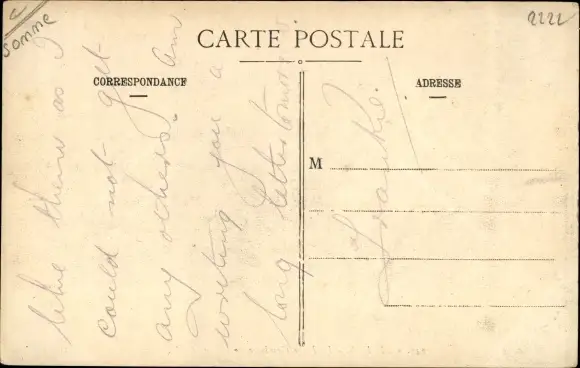 Somme
2222
CARTE POSTALE
CORRESPONDANCE
ADRESSE
M
like them as I
could not get
any others. am
writing you a
long letter tomorrow
Frankie.